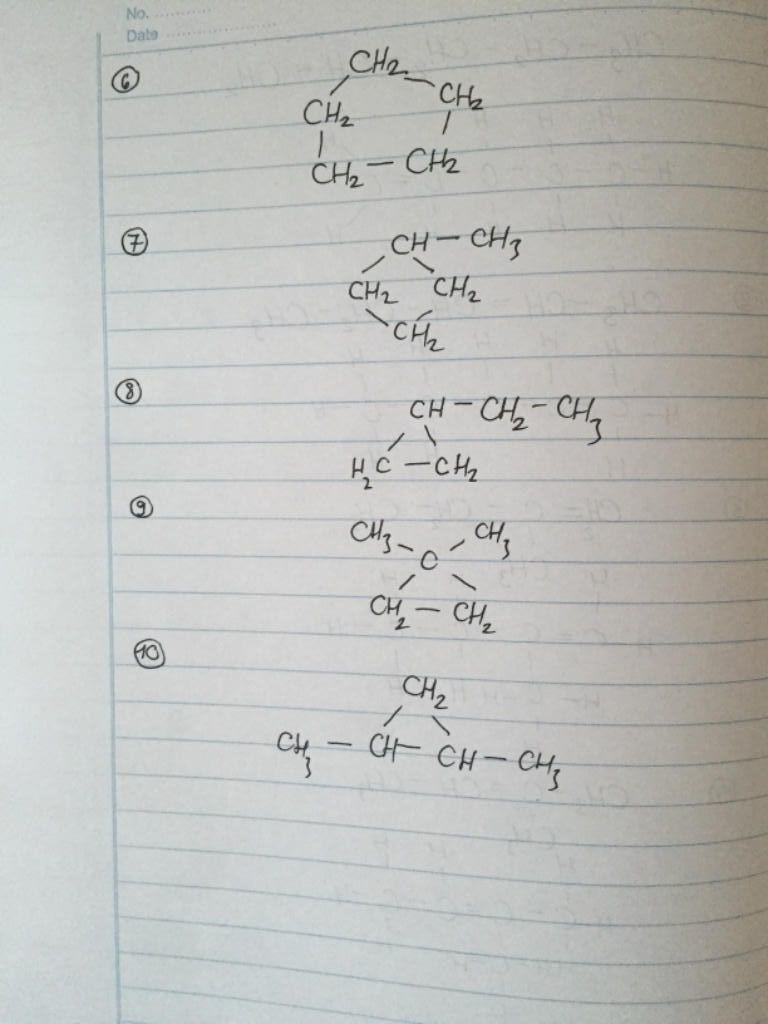 No.
Date
⑥ CH2
CH2 CH2
CH2 — CH2
⑦ CH — CH3
CH2 CH2
CH2
⑧ CH — CH2 — CH3
H2C — CH2
⑨ CH3 CH3
C
CH2 — CH2
⑩ CH2
CH3 — CH — CH — CH3